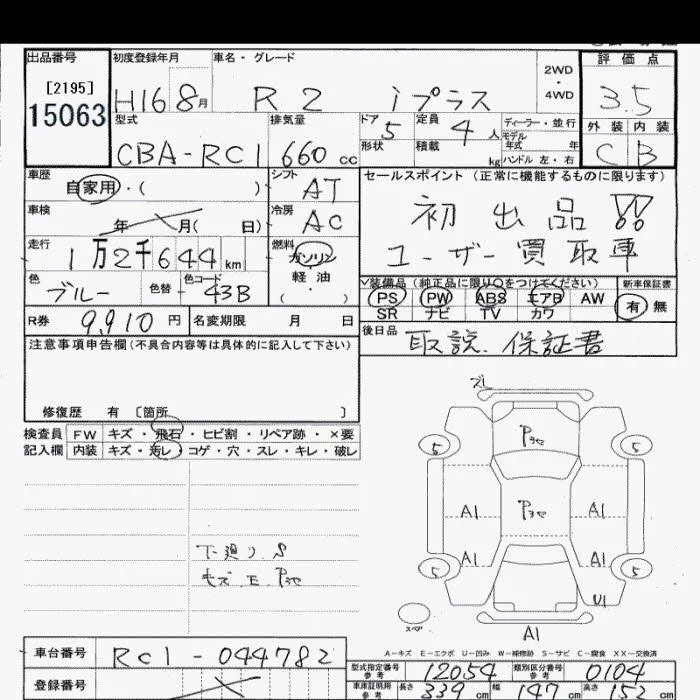 出品番号 初度登録年月 車名・グレード 2WD・4WD 評価点
[2195]
15063 H16 8月 R2 iプラス 3.5
型式 排気量 ドア 定員 ディーラー・並行 外装 内装
CBA-RC1 660cc 5 4人 モデル年式 年 C B
形状 積載 kg ハンドル 左・右
車歴 シフト セールスポイント(正常に機能するものに限ります)
自家用・( ) AT 初出品!!
車検 冷房
年 月( 日) AC ユーザー買取車
走行 燃料
1万2千644km ガソリン
軽油
(・)
色 色替 色コード 装備品(純正品に限り〇をつけてください) 新車保証書
ブルー 43B PS PW ABS エアB AW 有 無
SR ナビ TV カワ
R券 9,910円 名変期限 月 日 後日品 取説、保証書
注意事項申告欄(不具合内容等は具体的に記入して下さい)
修復歴 有 [箇所 ]
検査員 FW キズ・飛石・ヒビ割・リペア跡・×要
記入欄 内装 キズ・汚レ・コゲ・穴・スレ・キレ・破レ
ズレ
5 5
A1 A1
A1 A1
5 5
U1
下廻り S
キズ、E
スペア
A1
A-キズ E-エクボ U-凹み W-補修跡 S-サビ C-腐食 XX-交換済
車台番号 RC1-044782
型式指定番号 参考 12054 類別区分番号 参考 0104
登録番号
車庫証明用 参考 長さ 339cm 幅 147cm 高さ 152cm